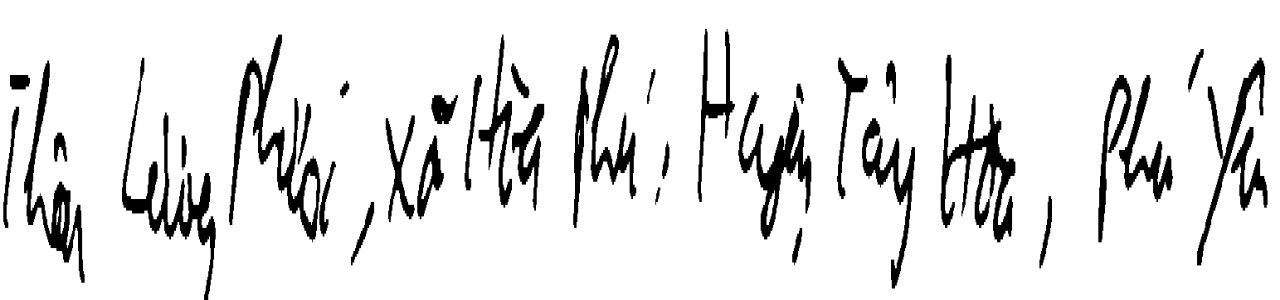 Thôn Lương Phước, Xã Hòa Phú, Huyện Tây Hòa, Phú Yên